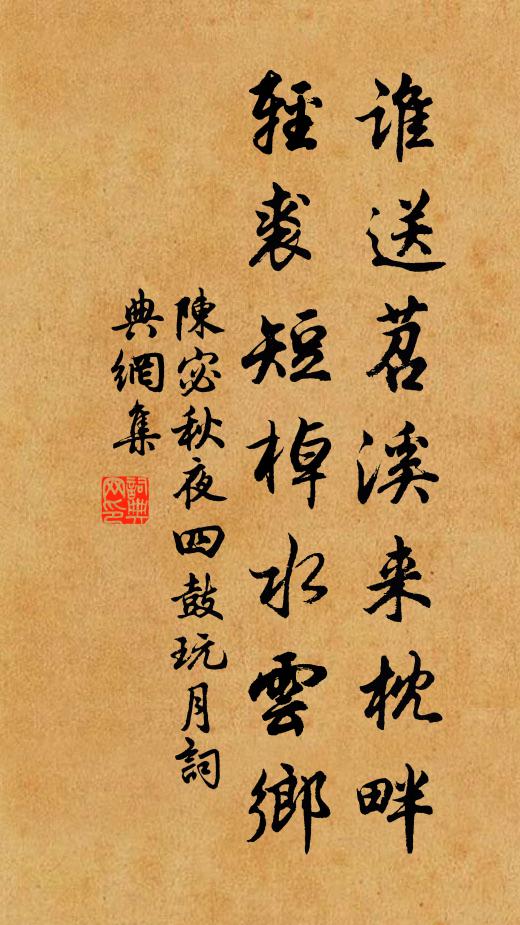 谁送苕溪来枕畔
輕裘短棹水雲鄉
陳宓秋夜四鼓玩月詞
典網集
詞典
网印